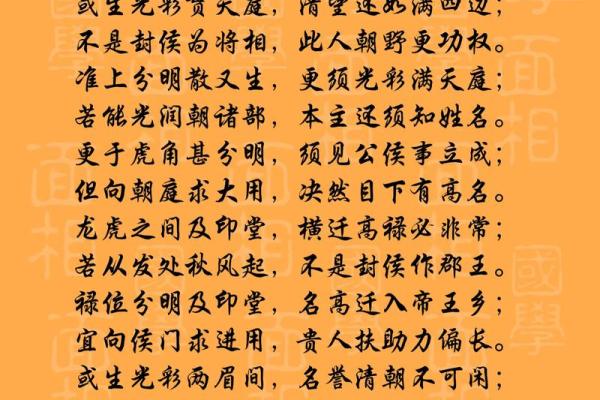 或生光彩贯天庭，清望还如满四边；
不是封侯为将相，此人朝野更功权。
准上分明散又生，更须光彩满天庭；
若能光润朝诸部，本主还须知姓名。
更于虎角甚分明，须见公侯事立成；
但向朝庭求大用，决然目下有高名。
龙虎之间及印堂，横迁高禄必非常；
若从发处秋风起，不是封侯作郡王。
禄位分明及印堂，名高迁入帝王乡；
宜向侯门求进用，贵人扶助力偏长。
或生光彩两眉间，名誉清朝不可闲；
面相
國學